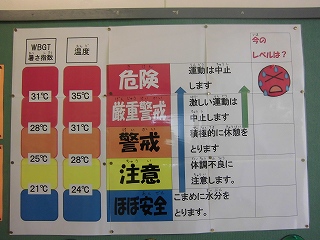 WBGT
暑さ指数
温度
今の
レベルは？
危険
運動は中止
します
31℃
35℃
厳重警戒
激しい運動は
中止します
28℃
31℃
警戒
積極的に休憩を
とります
25℃
28℃
注意
体調不良に
注意します。
21℃
24℃
ほぼ安全
こまめに水分を
とります。